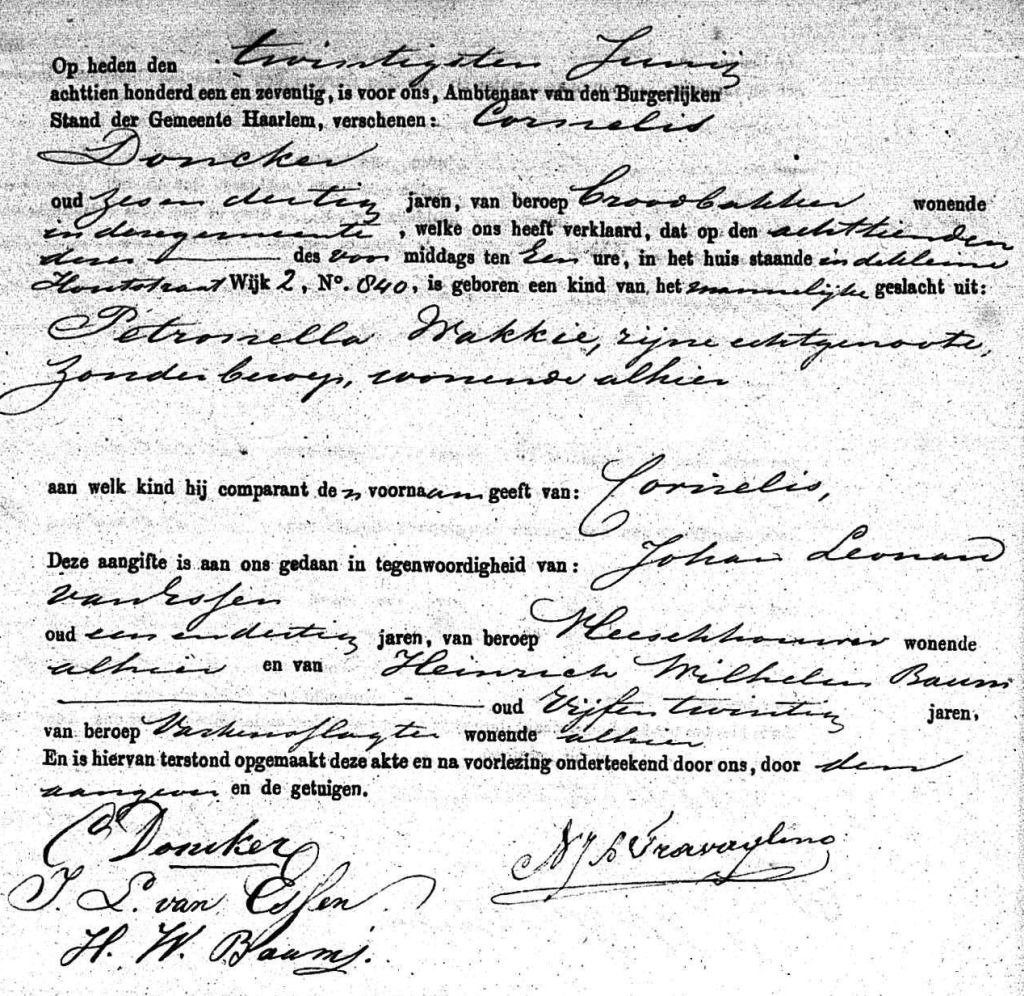 Op heden den twintigsten Junij
achttien honderd een en zeventig, is voor ons, Ambtenaar van den Burgerlijken
Stand der Gemeente Haarlem, verschenen: Cornelis
Doncker
oud zesendertig jaren, van beroep Broodbakker wonende
in deze gemeente, welke ons heeft verklaard, dat op den achttienden
dezer des voor middags ten Een ure, in het huis staande in de kleine
Houtstraat Wijk 2, No. 840, is geboren een kind van het mannelijke geslacht uit:
Petronella Wakkie, zijne echtgenoote,
Zonder beroep, wonende alhier
aan welk kind hij comparant den voornaam geeft van: Cornelis,
Deze aangifte is aan ons gedaan in tegenwoordigheid van: Johan Leonard
van Essen
oud een en dertig jaren, van beroep Vleeschhouwer wonende
alhier en van Heinrich Wilhelm Baums
oud Vijfentwintig jaren,
van beroep Varkensslagter wonende alhier
En is hiervan terstond opgemaakt deze akte en na voorlezing onderteekend door ons, door den
aangever en de getuigen.
C Doncker
Travaglino
J. L. van Essen
H. W. Baums.